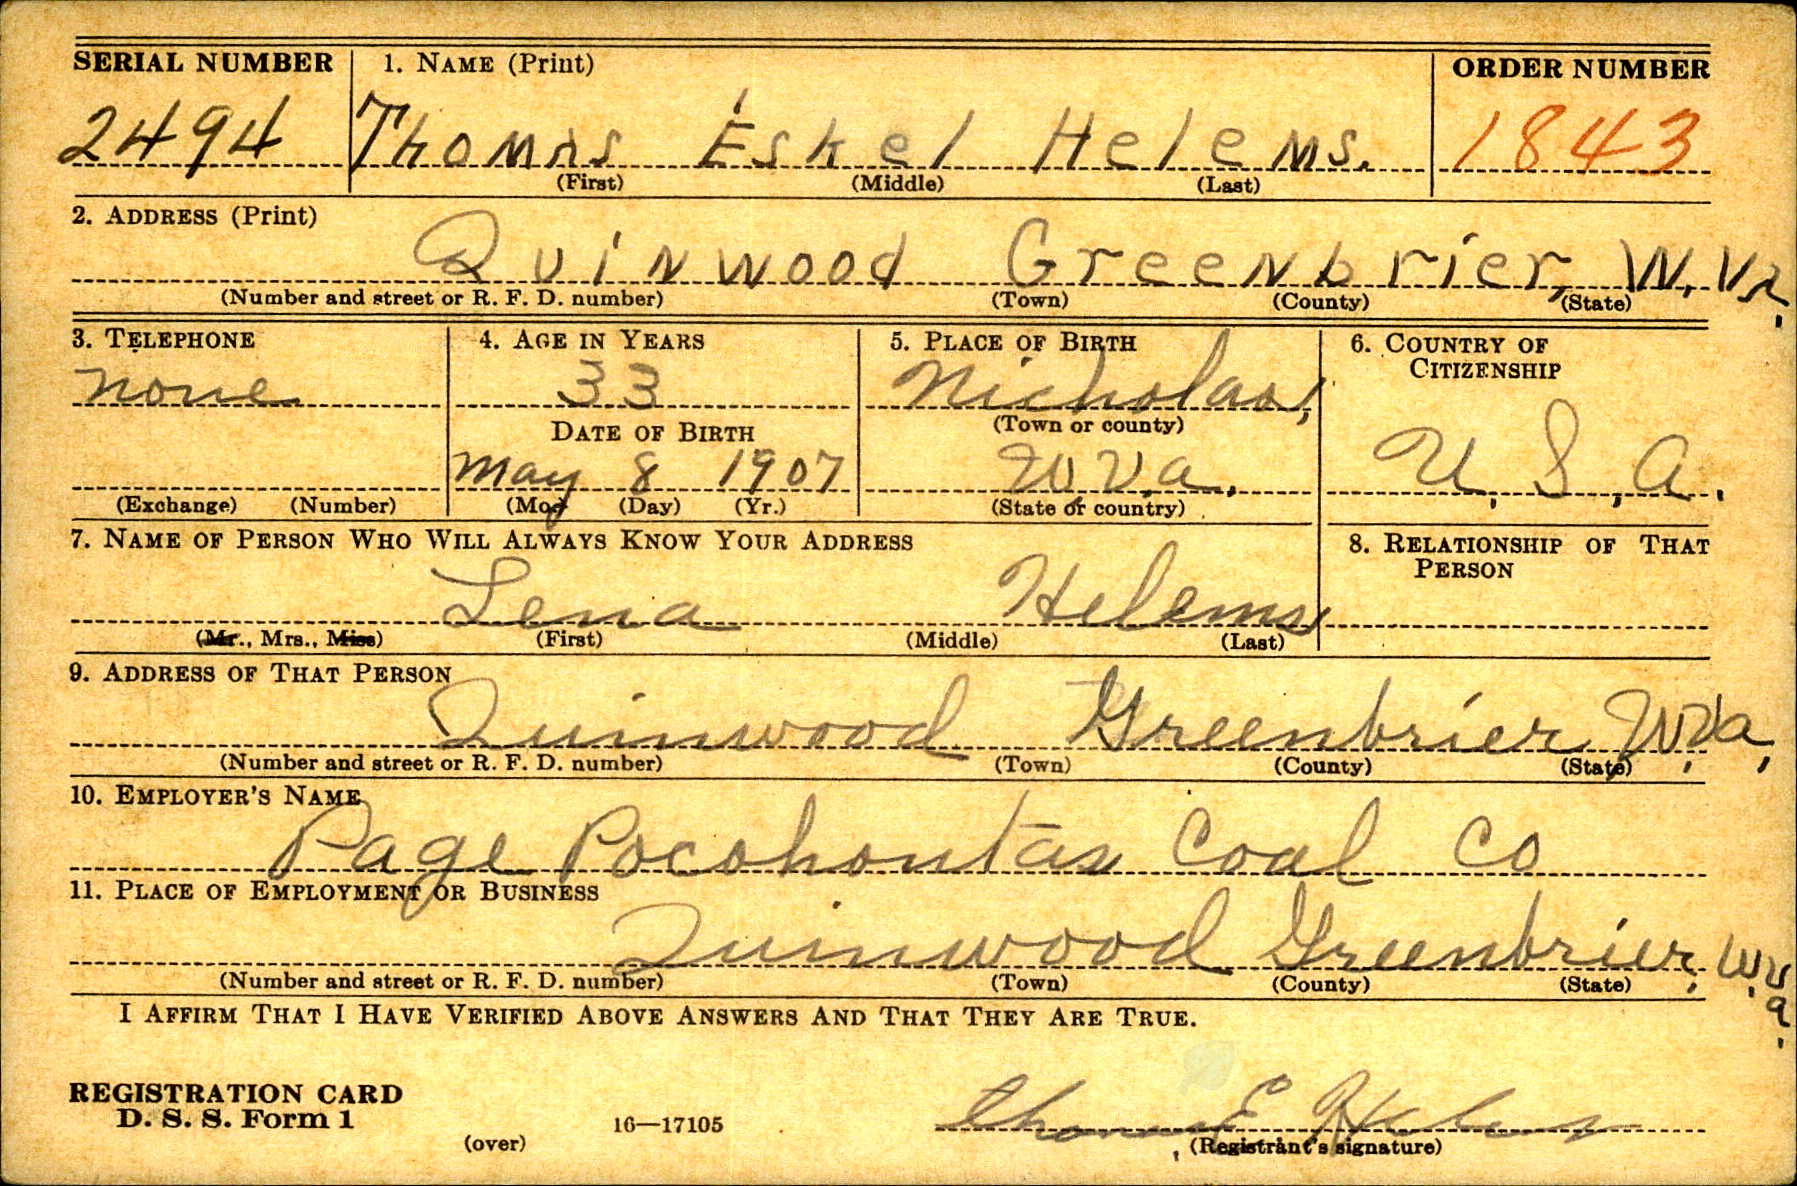 SERIAL NUMBER 1. NAME (Print) ORDER NUMBER
2494 Thomas Eskel Helems. 1843
(First) (Middle) (Last)
2. ADDRESS (Print)
Quinwood Greenbrier, W. Va.
(Number and street or R. F. D. number) (Town) (County) (State)
3. TELEPHONE 4. AGE IN YEARS 5. PLACE OF BIRTH 6. COUNTRY OF
CITIZENSHIP
none 33 Nicholas,
(Town or county)
DATE OF BIRTH
May 8 1907 W.Va. U.S.A.
(Exchange) (Number) (Mo.) (Day) (Yr.) (State or country)
7. NAME OF PERSON WHO WILL ALWAYS KNOW YOUR ADDRESS 8. RELATIONSHIP OF THAT
PERSON
Lena Helems
(Mr., Mrs., Miss) (First) (Middle) (Last)
9. ADDRESS OF THAT PERSON
Quinwood Greenbrier W.Va.
(Number and street or R. F. D. number) (Town) (County) (State)
10. EMPLOYER'S NAME
Page Pocohontas Coal Co
11. PLACE OF EMPLOYMENT OR BUSINESS
Quinwood Greenbrier, W.Va.
(Number and street or R. F. D. number) (Town) (County) (State)
I AFFIRM THAT I HAVE VERIFIED ABOVE ANSWERS AND THAT THEY ARE TRUE.
REGISTRATION CARD
D. S. S. Form 1
(over) 16—17105
Thomas E Helems
(Registrant's signature)